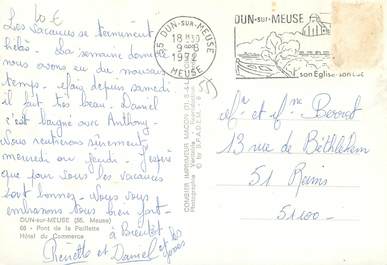 10 €
Les vacances se terminent
hélas. La semaine dernière
nous avons eu du mauvais
temps. Mais depuis samedi
il fait très beau. Daniel
s'est baigné avec Anthony.
Nous rentrerons surement
mercredi ou jeudi. J'espère
que pour vous les vacances
sont bonnes. Nous vous
embrassons tous bien fort.
DUN-sur-MEUSE (55. Meuse)
66 - Pont de la
Hôtel du Commerce
à Bientôt
et Daniel et les
55 DUN-SUR-MEUSE
18H30
9-8
1972
MEUSE
DUN-SUR-MEUSE
son Eglise, son Lac
55
COMBIER IMPRIMEUR MACON
Mr et Mme
13 rue de Bethléem
51 Reims
51100